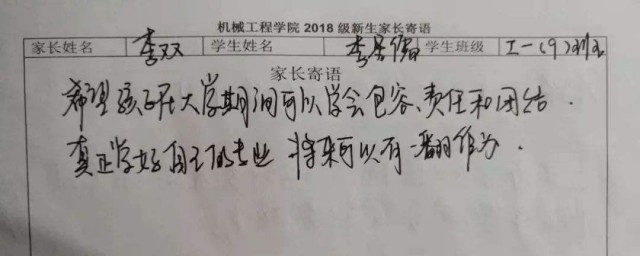 机械工程学院 2018 级新生家长寄语
家长姓名 李双 学生姓名 李 学生班级 I-(9)班
家长寄语
希望孩子在大学期间可以学会包容、责任和团结.
真正学好自己的专业 将来可以有一翻作为.